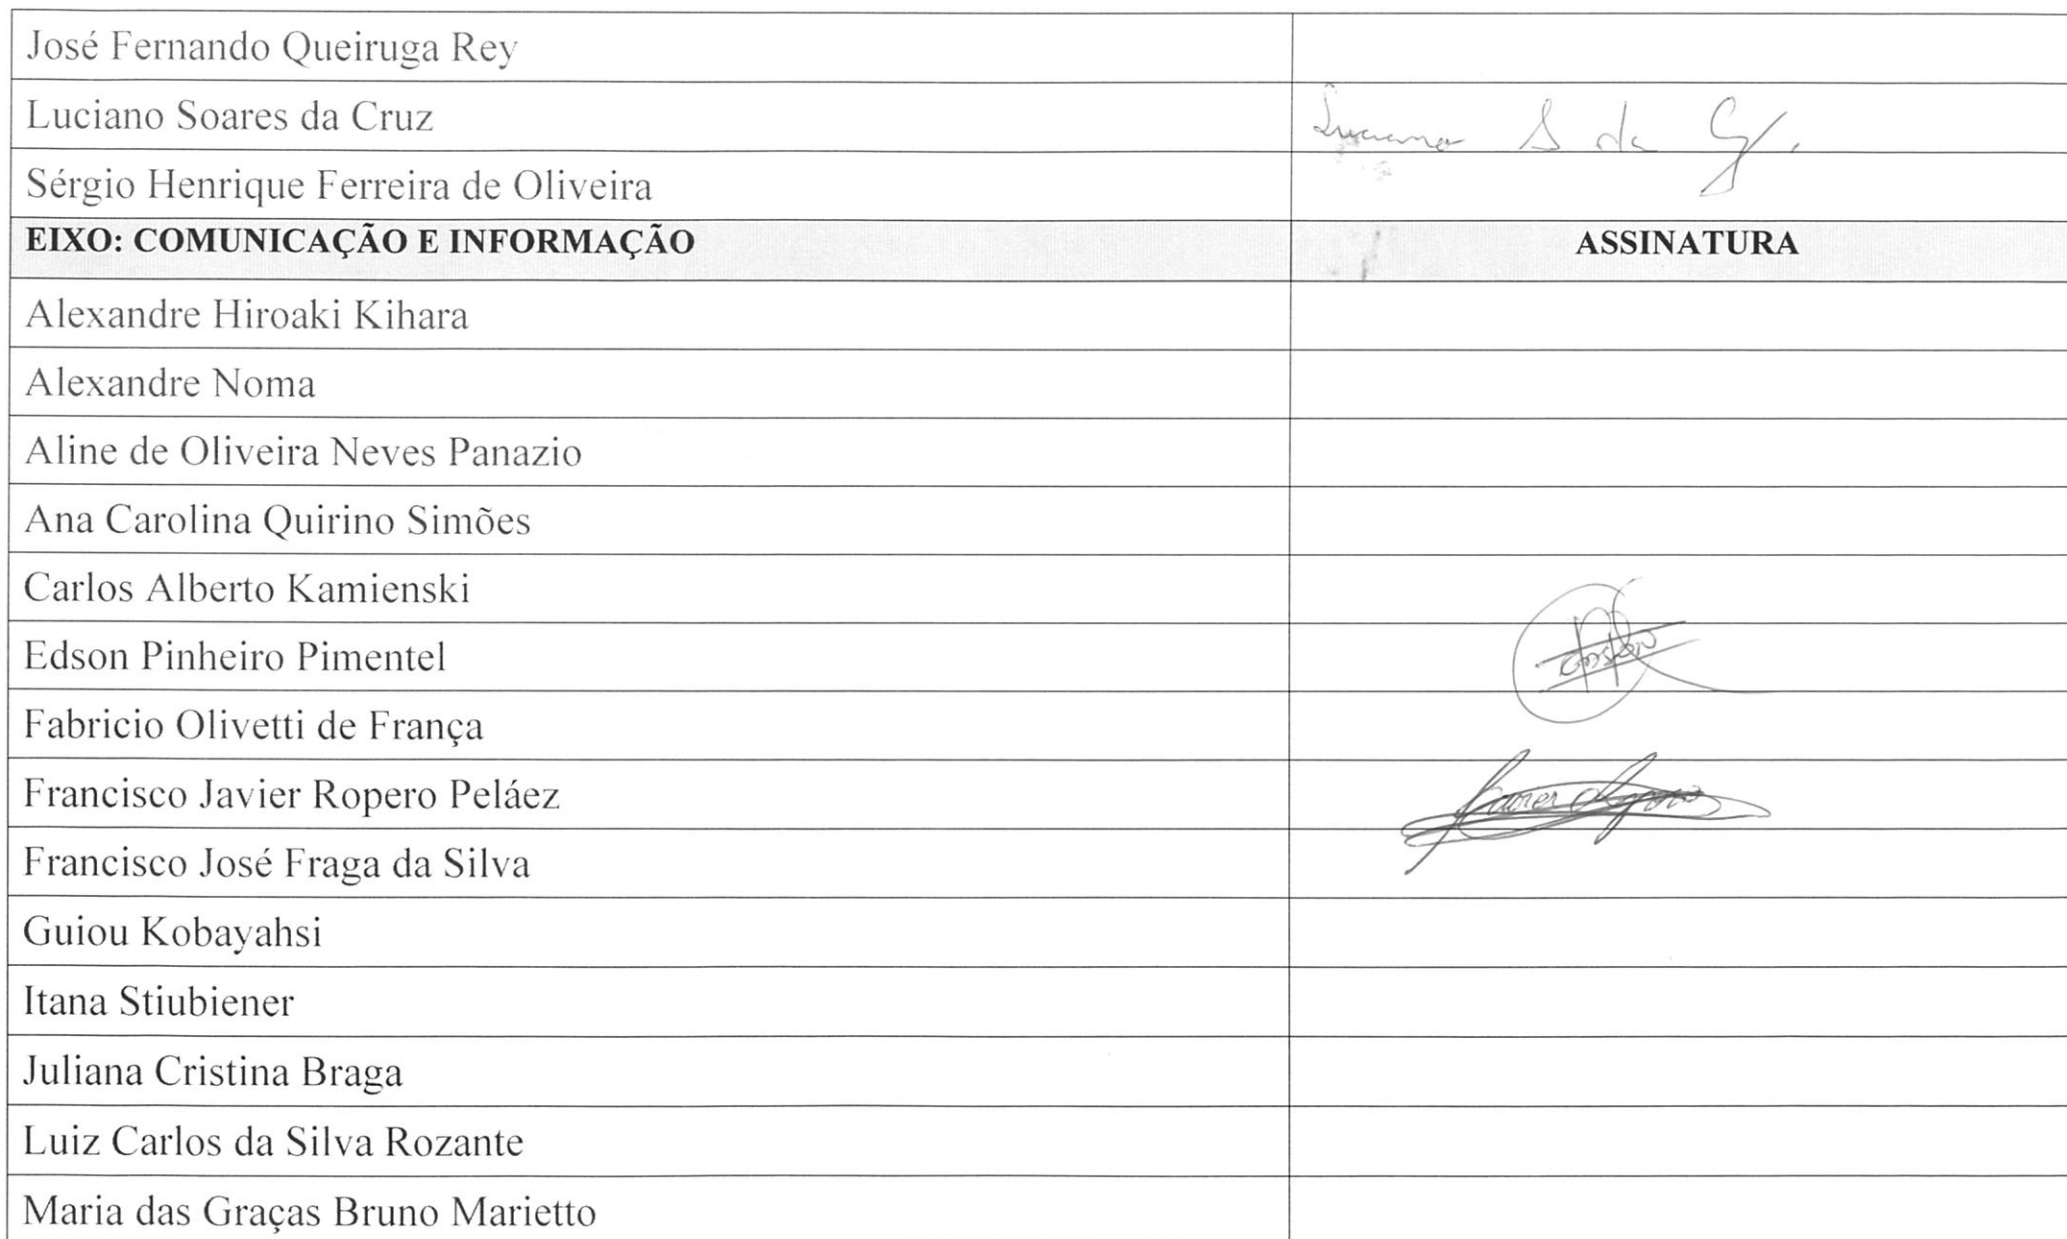 José Fernando Queiruga Rey
Luciano Soares da Cruz Luciano S da
Sérgio Henrique Ferreira de Oliveira
EIXO: COMUNICAÇÃO E INFORMAÇÃO ASSINATURA
Alexandre Hiroaki Kihara
Alexandre Noma
Aline de Oliveira Neves Panazio
Ana Carolina Quirino Simões
Carlos Alberto Kamienski
Edson Pinheiro Pimentel
Fabricio Olivetti de França
Francisco Javier Ropero Peláez
Francisco José Fraga da Silva
Guiou Kobayahsi
Itana Stiubiener
Juliana Cristina Braga
Luiz Carlos da Silva Rozante
Maria das Graças Bruno Marietto